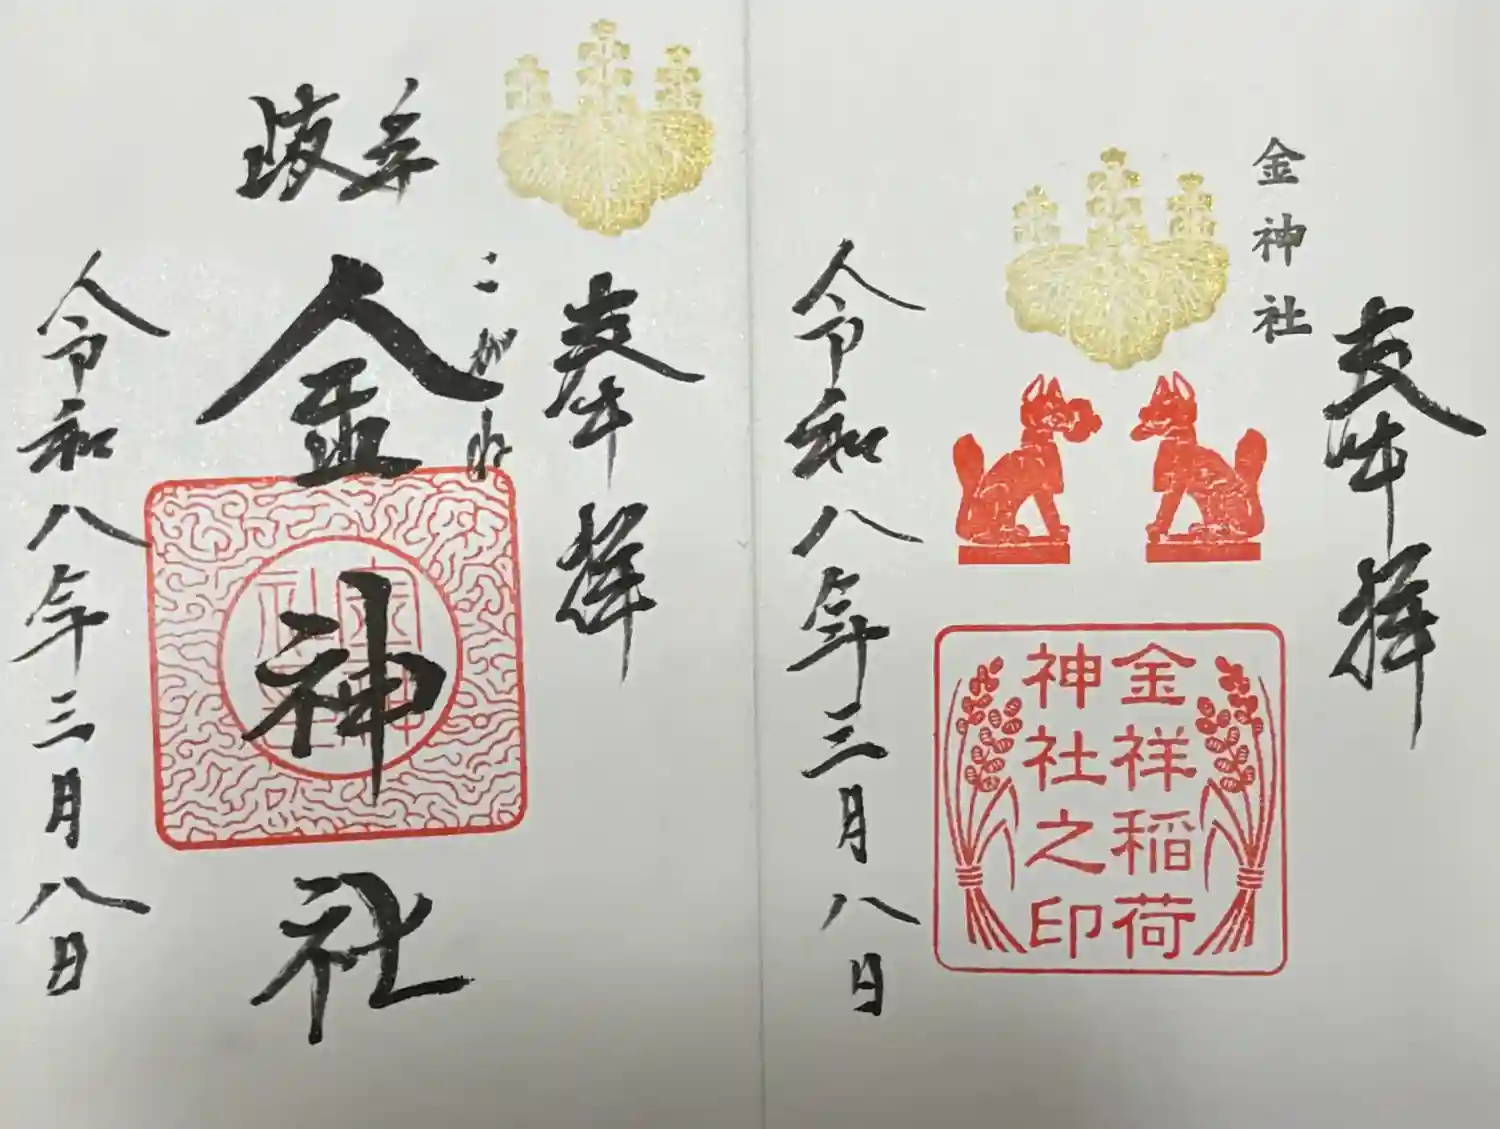 金神社
奉拝
金祥稲荷
神社之印
令和八年三月八日
奉拝
こがね
岐阜
金神社
令和八年三月八日